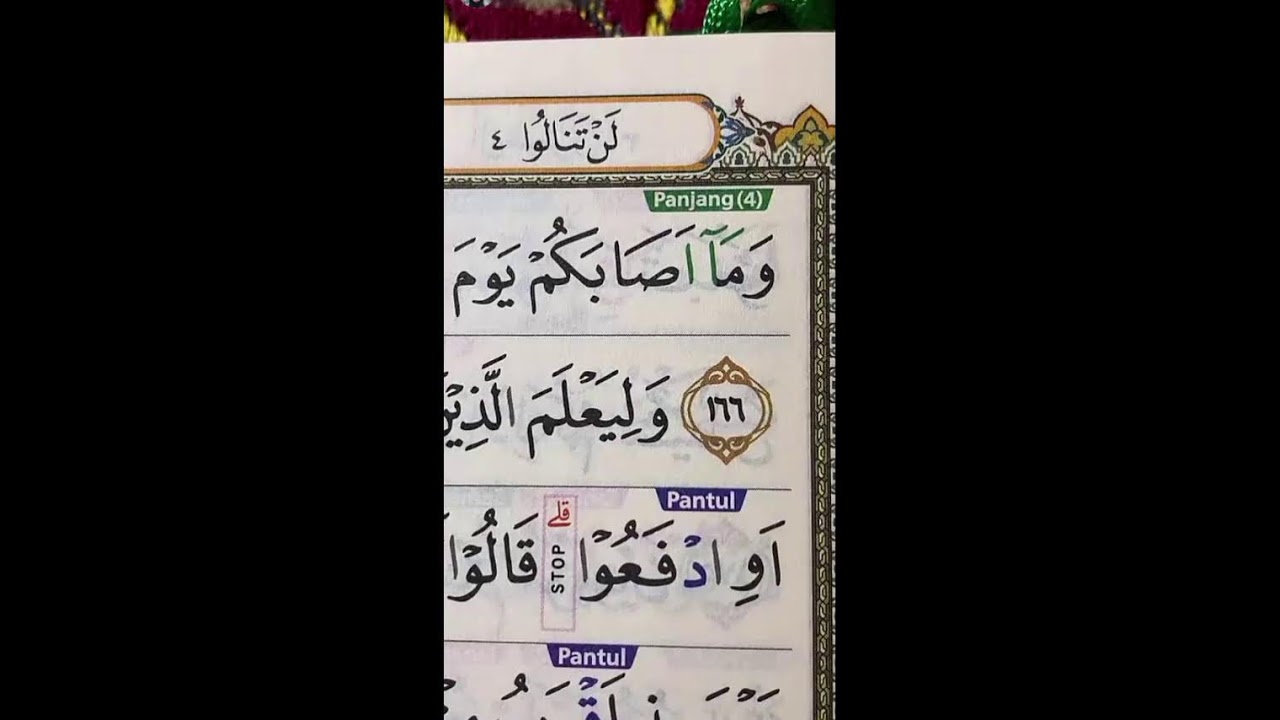 لَنْ تَنَالُوا ٤
Panjang (4)
وَمَآ اَصَابَكُمْ يَوْمَ
١٦٦ وَلِيَعْلَمَ الَّذِيْنَ
Pantul
اَوِ ادْفَعُوْا قلے STOP قَالُوْا
Pantul